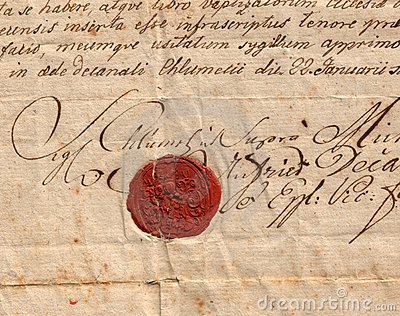 ta se habere, atque libro baptizatorum
censis inserta esse infrascriptus tenore
facio, meumque usitatum sygillum apprimo
in æde decanali Chlumecii die 22 Januarii
Sigl. Chlumetzii Supra
Deca
E Eppl: Vic:
© Dreamstime.com